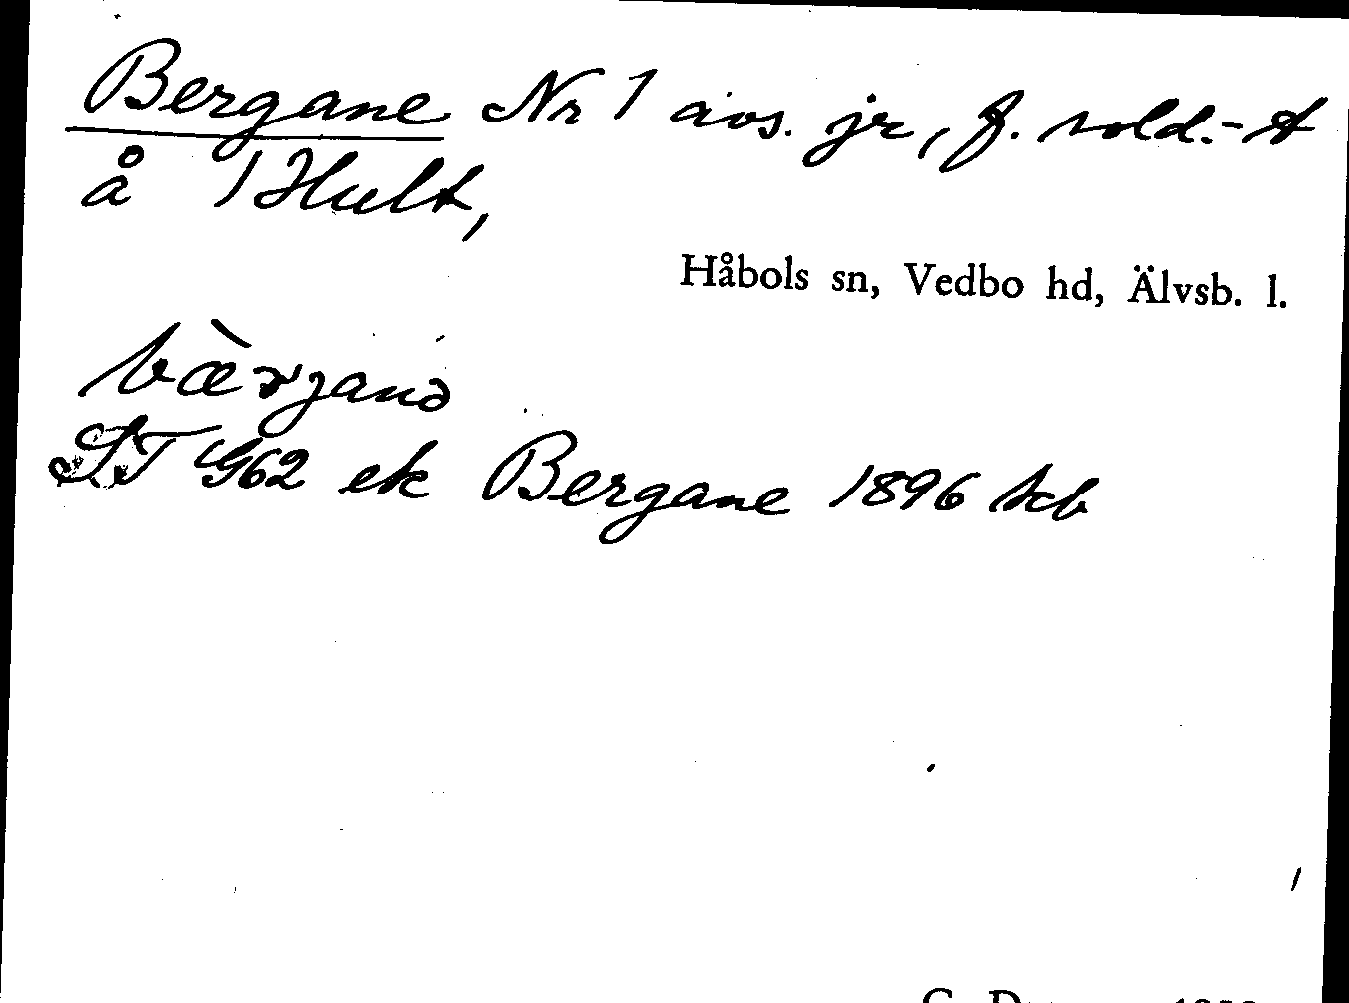 Bergane Nr 1 avs. jr, f. sold.-t
å 1 Hult,
Håbols sn, Vedbo hd, Älvsb. l.
bæ̀rjanə
ST G62 ek Bergane 1896 kb